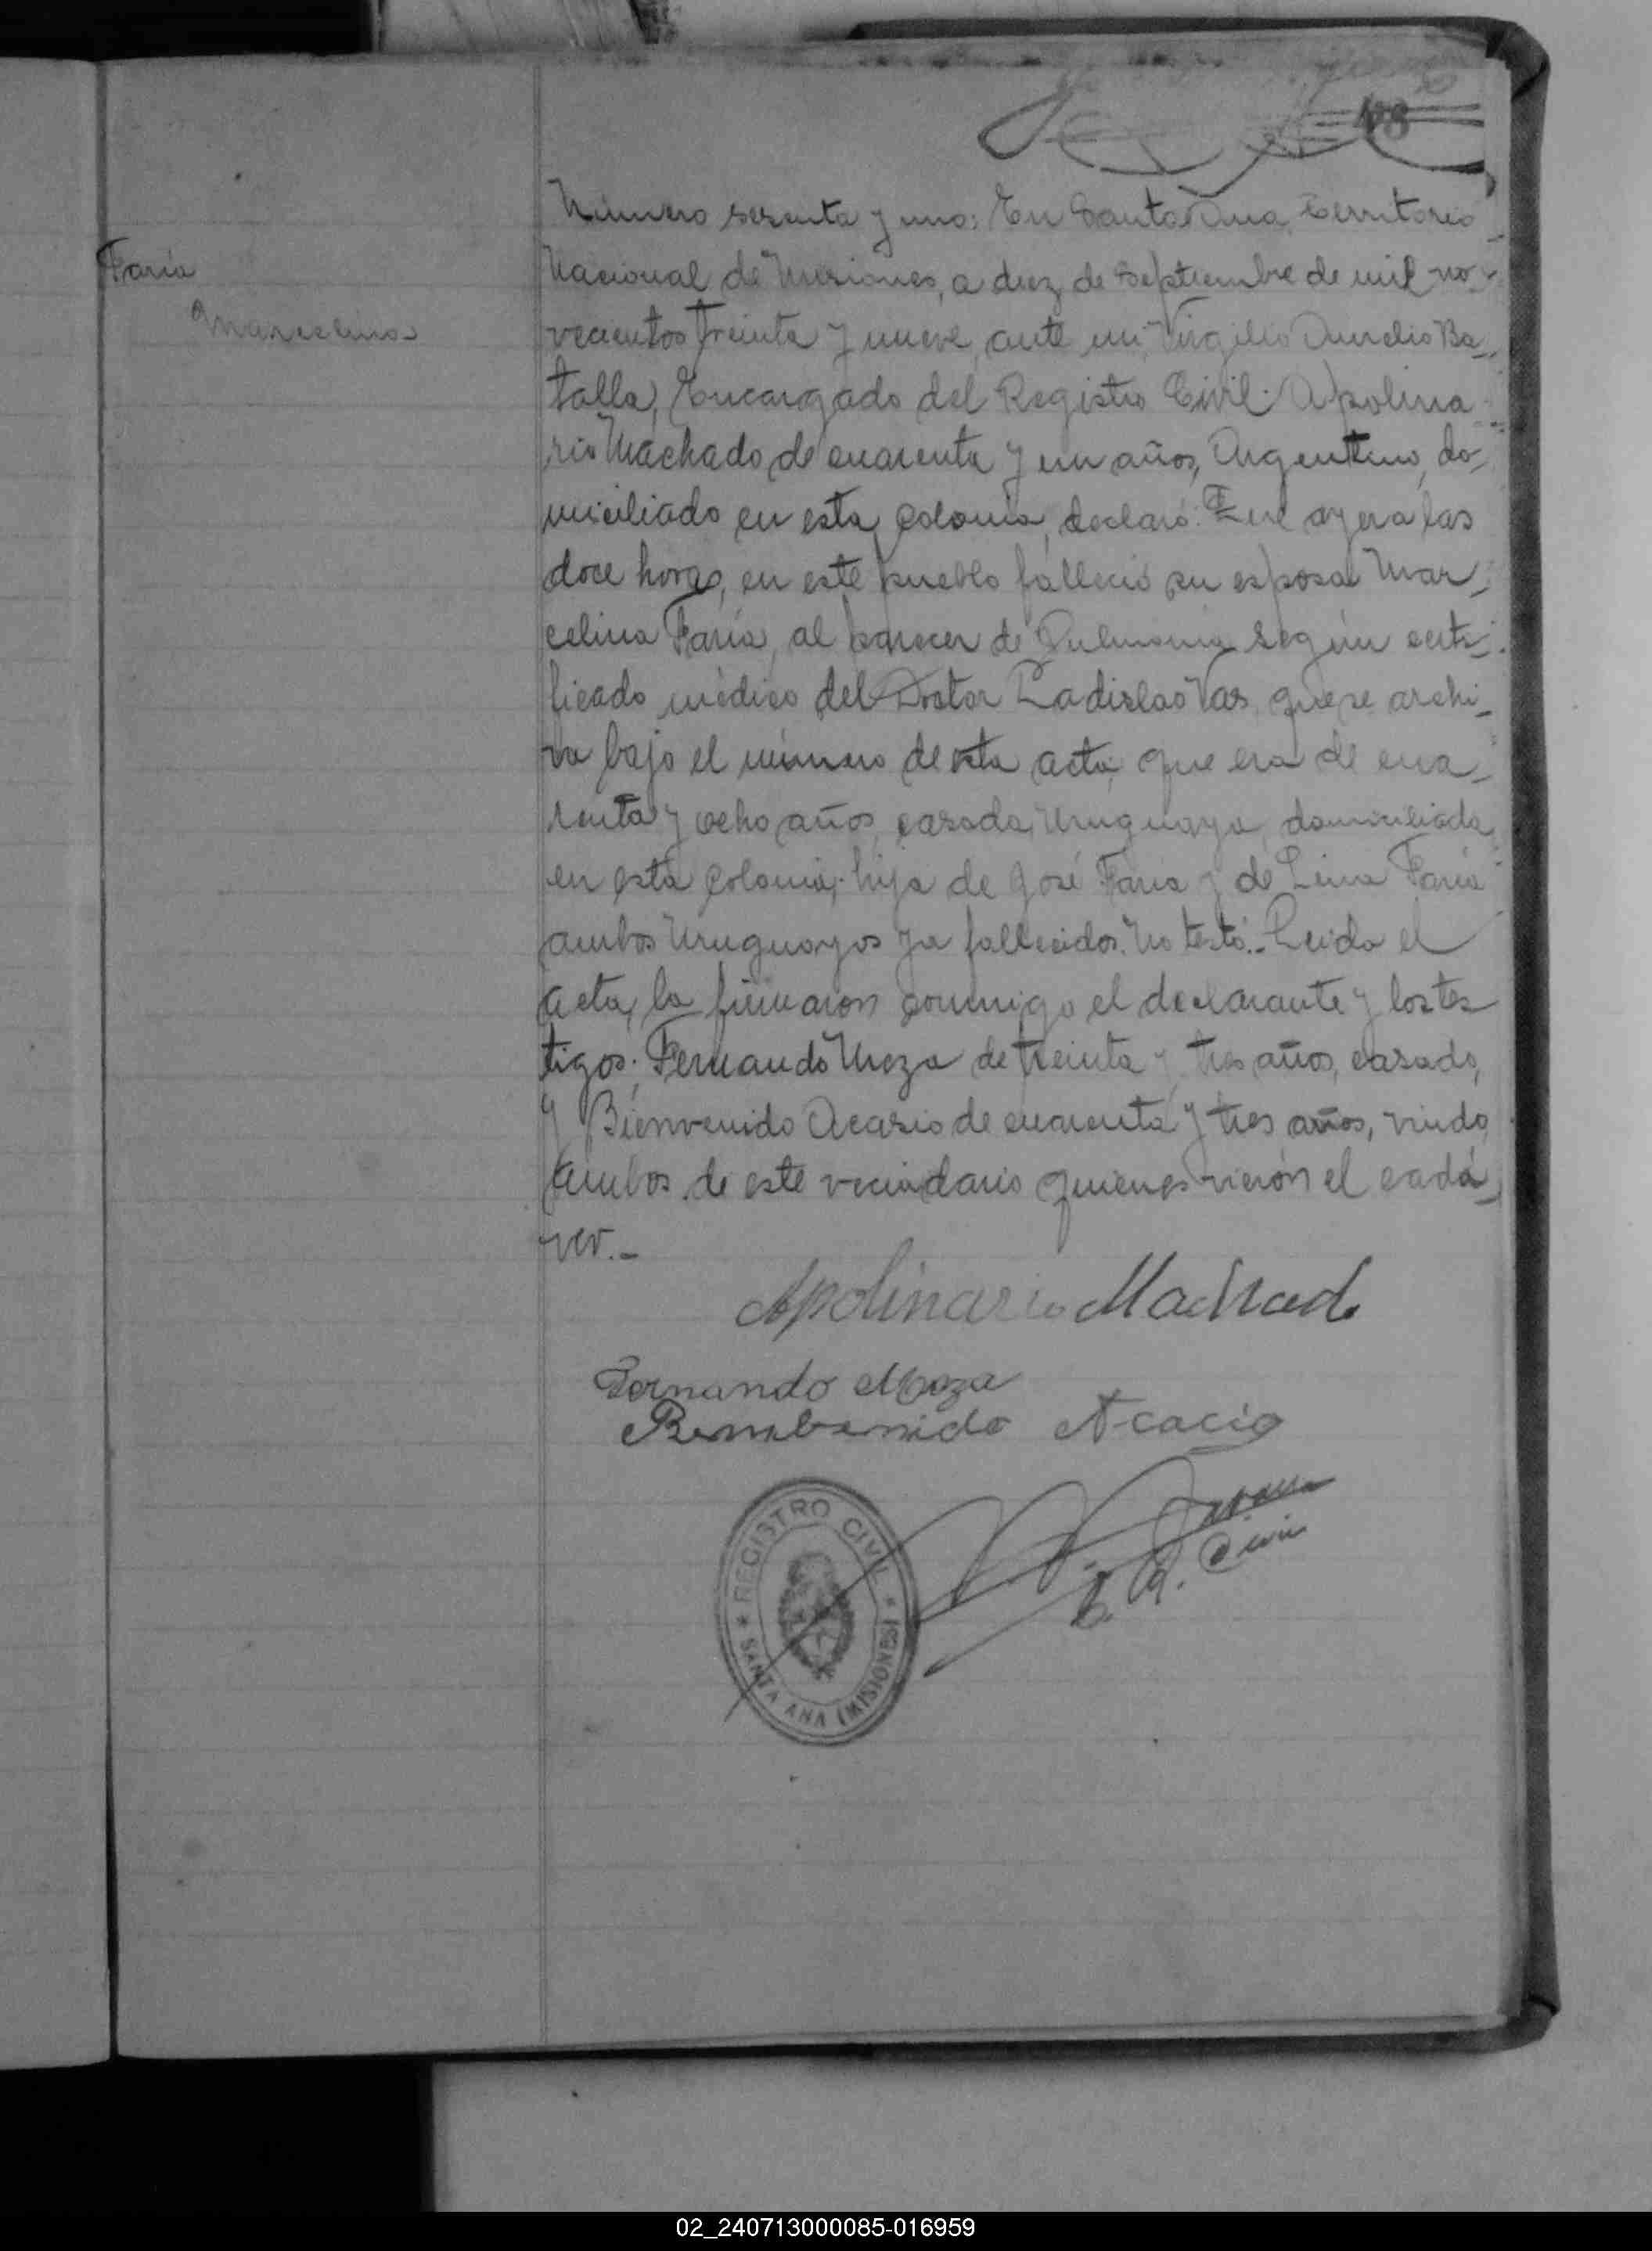 48
Número sesenta y uno: En Santa Ana, Territorio
Faría
Nacional de Misiones, a diez de Septiembre de mil no-
Marcelina
vecientos treinta y nueve, ante mi Virgilio Aurelio Ba-
talla, Encargado del Registro Civil. Apolina-
rio Machado de cuarenta y un años, Argentino, do-
miciliado en esta colonia, declaró: Que ayer a las
doce horas, en este pueblo falleció su esposa Mar-
celina Faría, al parecer de Pulmonía según certi-
ficado médico del Doctor Ladislao Vas que se archi-
va bajo el número de esta acta, que era de cua-
renta y ocho años, casada, Uruguaya, domiciliada
en esta colonia; hija de José Faria y de Lina Faría
ambos Uruguayos ya fallecidos. No testó.- Leida el
acta, la firmaron conmigo el declarante y los tes
tigos: Fernando Meza de treinta y tres años, casado,
y Bienvenido Acasio de cuarenta y tres años, viudo,
ambos de este vecindario quienes vieron el cadá-
ver.-
Apolinario Machado
Fernando Meza
Bembenido Acacio
E. R. Civil
REGISTRO CIVIL
* SANTA ANA (MISIONES) *
02_240713000085-016959